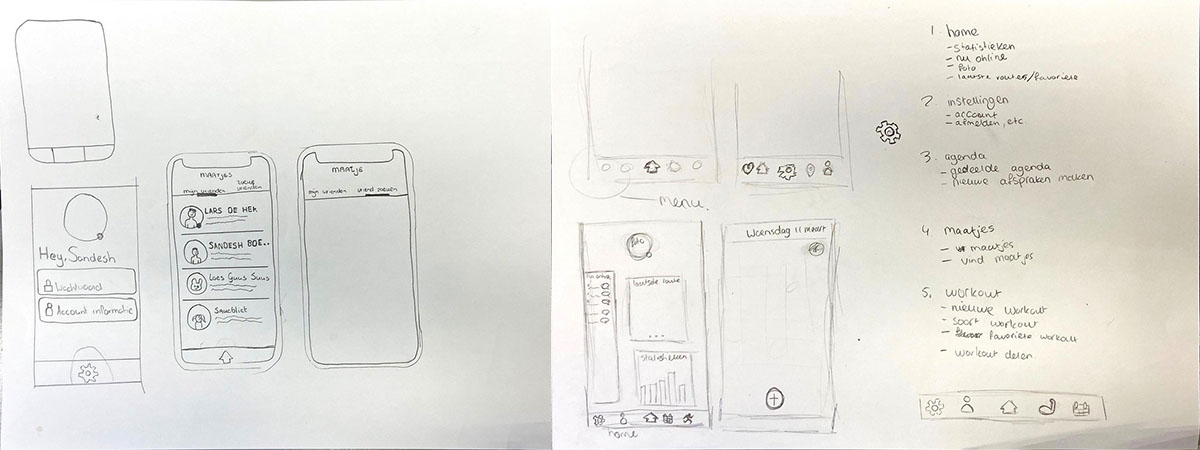 Hey, Sandesh
Wachtwoord
Account informatie
MAATJES
mijn vrienden
zoeke vrienden
LARS DE HEK
SANDESH BOE..
Loes Guus Suus
MAATJE
mijn vrienden
vriend zoeken
Menu
foto
laatste route
statistieken
home
Woensdag 11 maart
1. home
- statistieken
- nu online
- foto
- laatste routes/favoriete
2 instellingen
- account
- afmelden, etc.
3. agenda
- gedeelde agenda
- nieuwe afspraken maken
4 maatjes
- maatjes
- vind maatjes
5. workout
- nieuwe workout
- soort workout
- favoriete workout
- workout delen